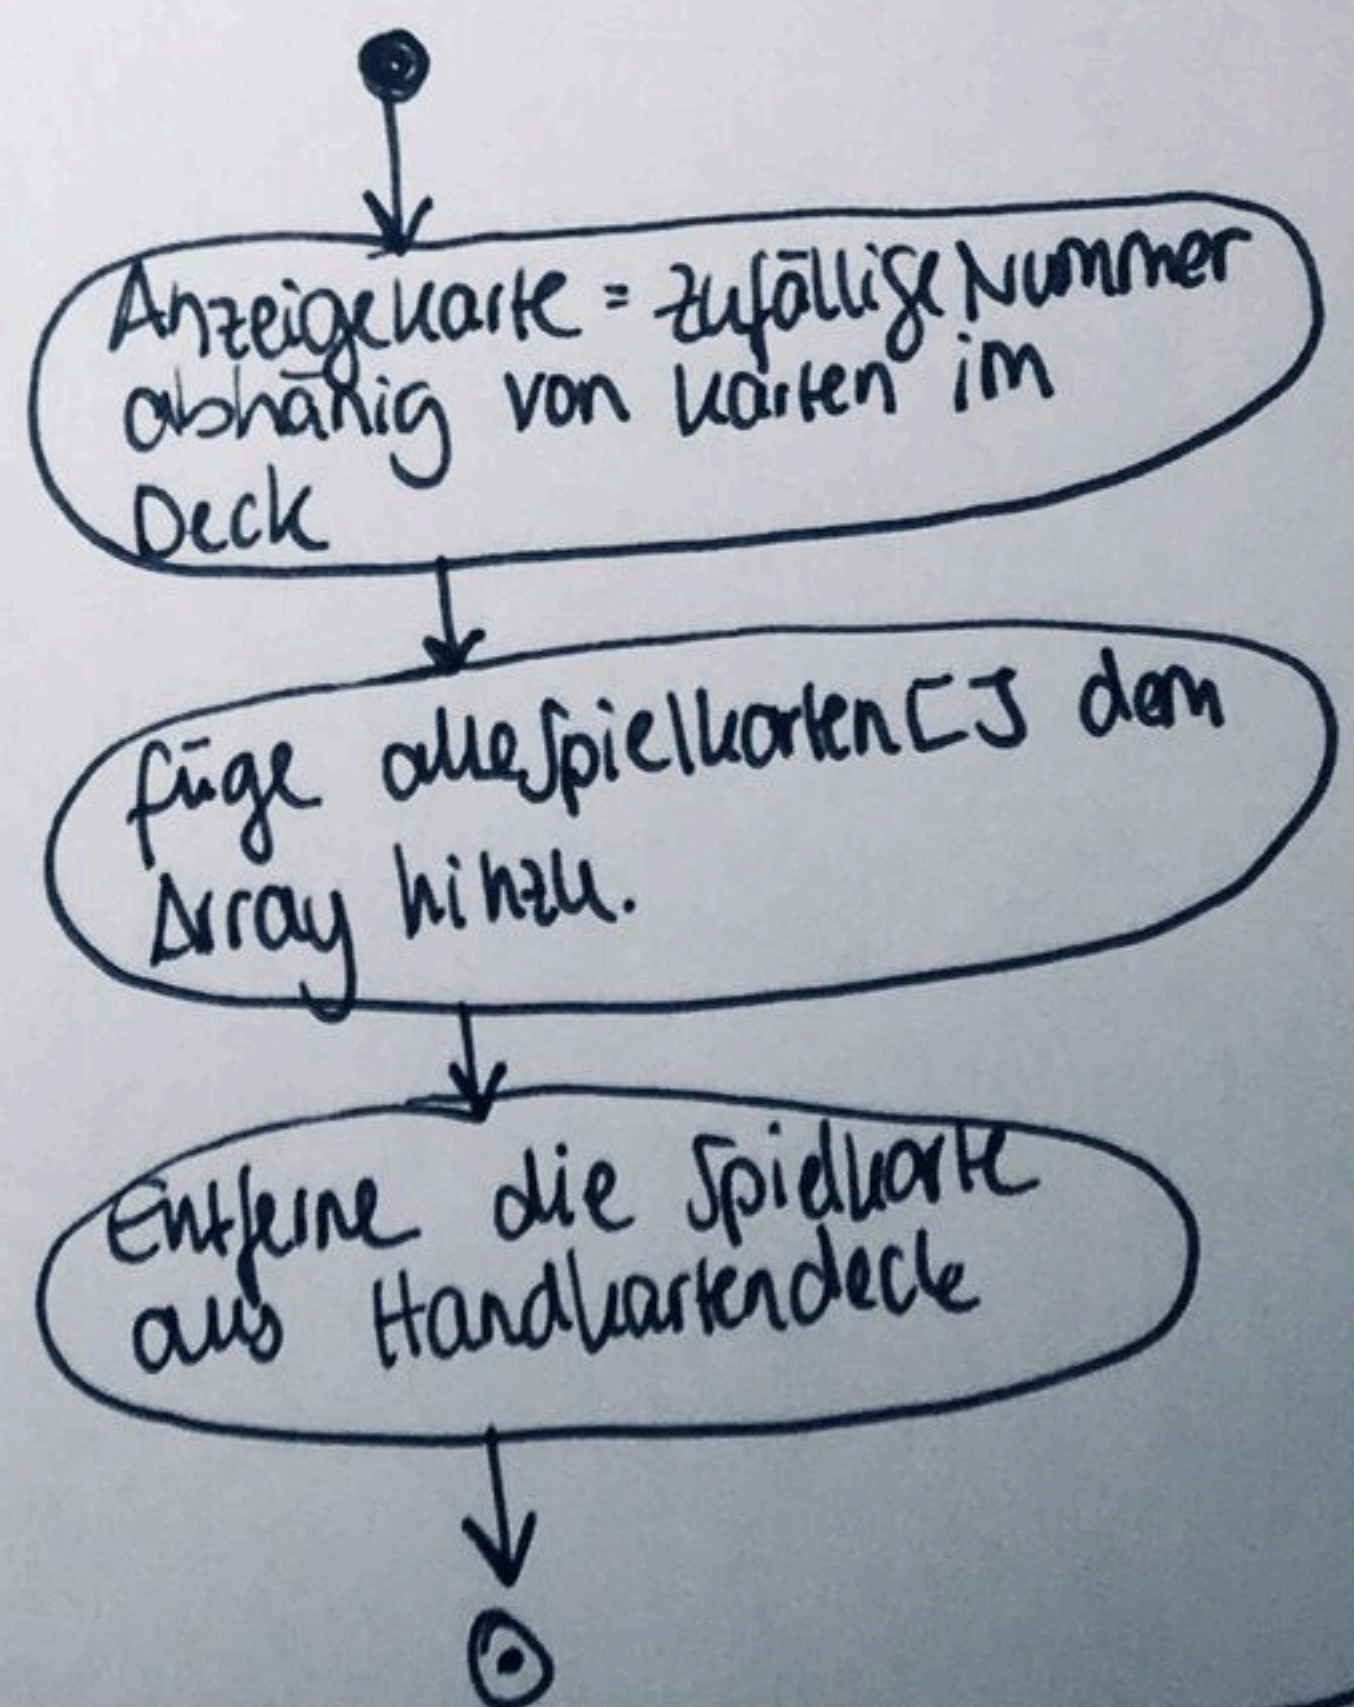 Anzeigekarte = zufällige Nummer
abhänig von Karten im
Deck
füge alleSpielkarten[] dem
Array hinzu.
Entferne die Spielkarte
aus Handkartendeck